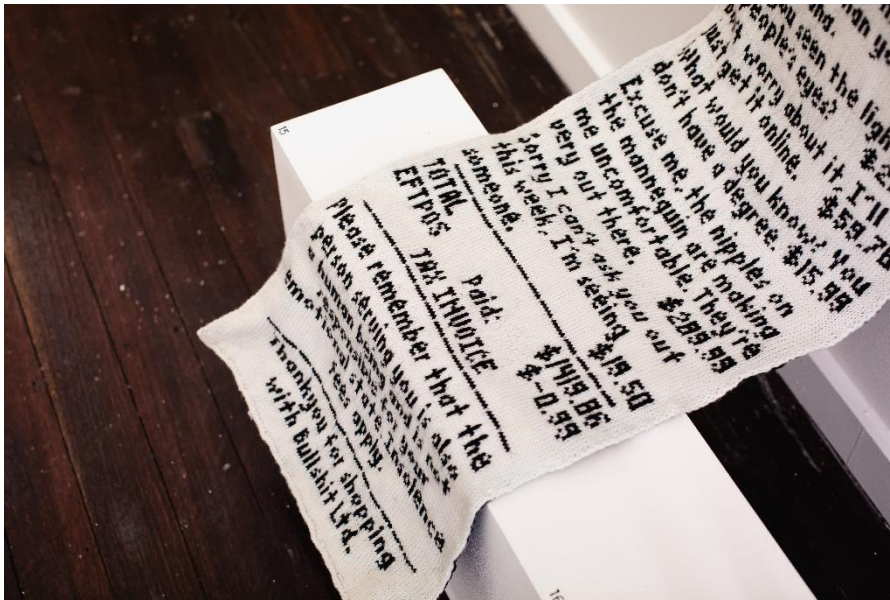 than you
ha.
you seen the ligh
people's eyes?
worry about it, I'll
just get it online. $59.70
What would you know? You
don't have a degree. $15.99
Excuse me, the nipples on
the mannequin are making
me uncomfortable. They're
very out there. $289.99
Sorry I can't ask you out
this week, I'm seeing
someone. $19.50
TOTAL $1419.86
EFTPOS Paid: $-0.99
TAX INVOICE
Please remember that the
person serving you is also
a human
emot apply.
Thankyou for shopping
with Bullshit Ltd.
15
16